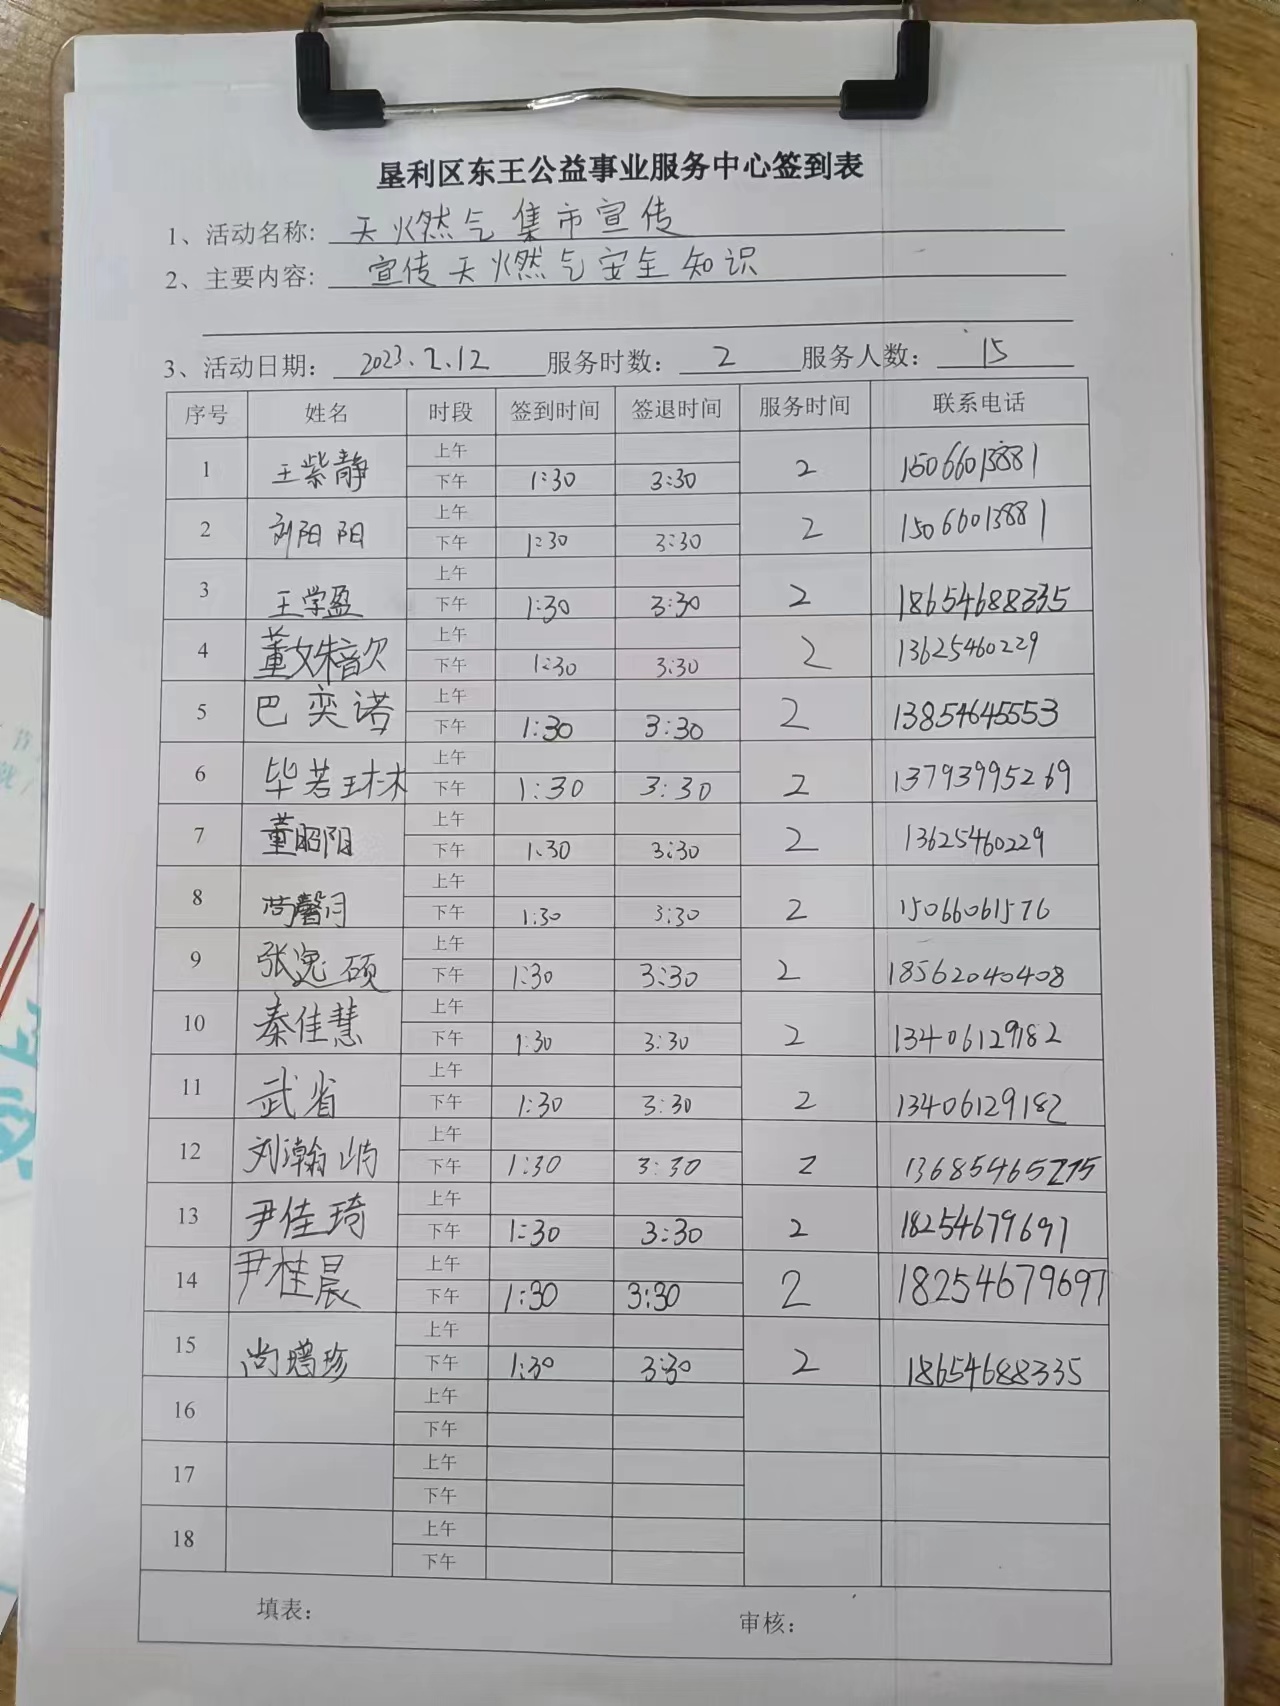 垦利区东王公益事业服务中心签到表
1、活动名称: 天燃气集市宣传
2、主要内容: 宣传天燃气安全知识
3、活动日期: 2023.2.12 服务时数: 2 服务人数: 15
序号 姓名 时段 签到时间 签退时间 服务时间 联系电话
1 王紫静 上午 2 15066013881
下午 1:30 3:30
2 刘阳阳 上午 2 15066013881
下午 1:30 3:30
3 王学盈 上午 2 18654688335
下午 1:30 3:30
4 董姝歆 上午 2 13625460229
下午 1:30 3:30
5 巴奕诺 上午 2 13854645553
下午 1:30 3:30
6 毕若琳 上午 2 13793995269
下午 1:30 3:30
7 董昭阳 上午 2 13625460229
下午 1:30 3:30
8 尚馨月 上午 2 15066061576
下午 1:30 3:30
9 张逸硕 上午 2 18562040408
下午 1:30 3:30
10 秦佳慧 上午 2 13406129182
下午 1:30 3:30
11 武省 上午 2 13406129182
下午 1:30 3:30
12 刘瀚屿 上午 2 13685465275
下午 1:30 3:30
13 尹佳琦 上午 2 18254679697
下午 1:30 3:30
14 尹桂晨 上午 2 18254679697
下午 1:30 3:30
15 尚珍 上午 2 18654688335
下午 1:30 3:30
16 上午
下午
17 上午
下午
18 上午
下午
填表: 审核: